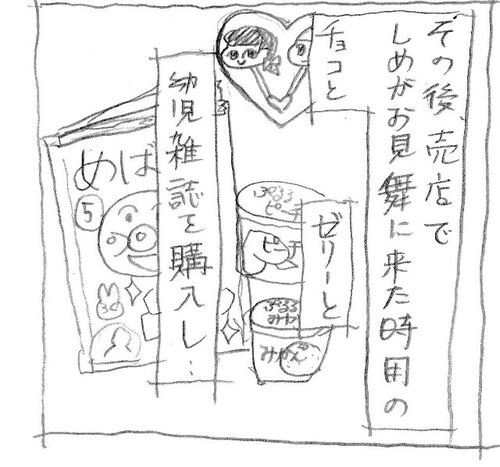 その後、売店で
しめがお見舞に来た時用の
チョコと
ゼリーと
幼児雑誌を購入し…
ぷるる
ピーチ
ピーチ
ぷるる
みか
みかん
めば
5